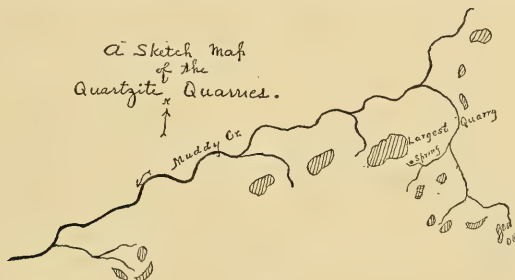 A Sketch Map
of the
Quartzite Quarries.
N
Muddy Cr.
Largest Quarry
Spring